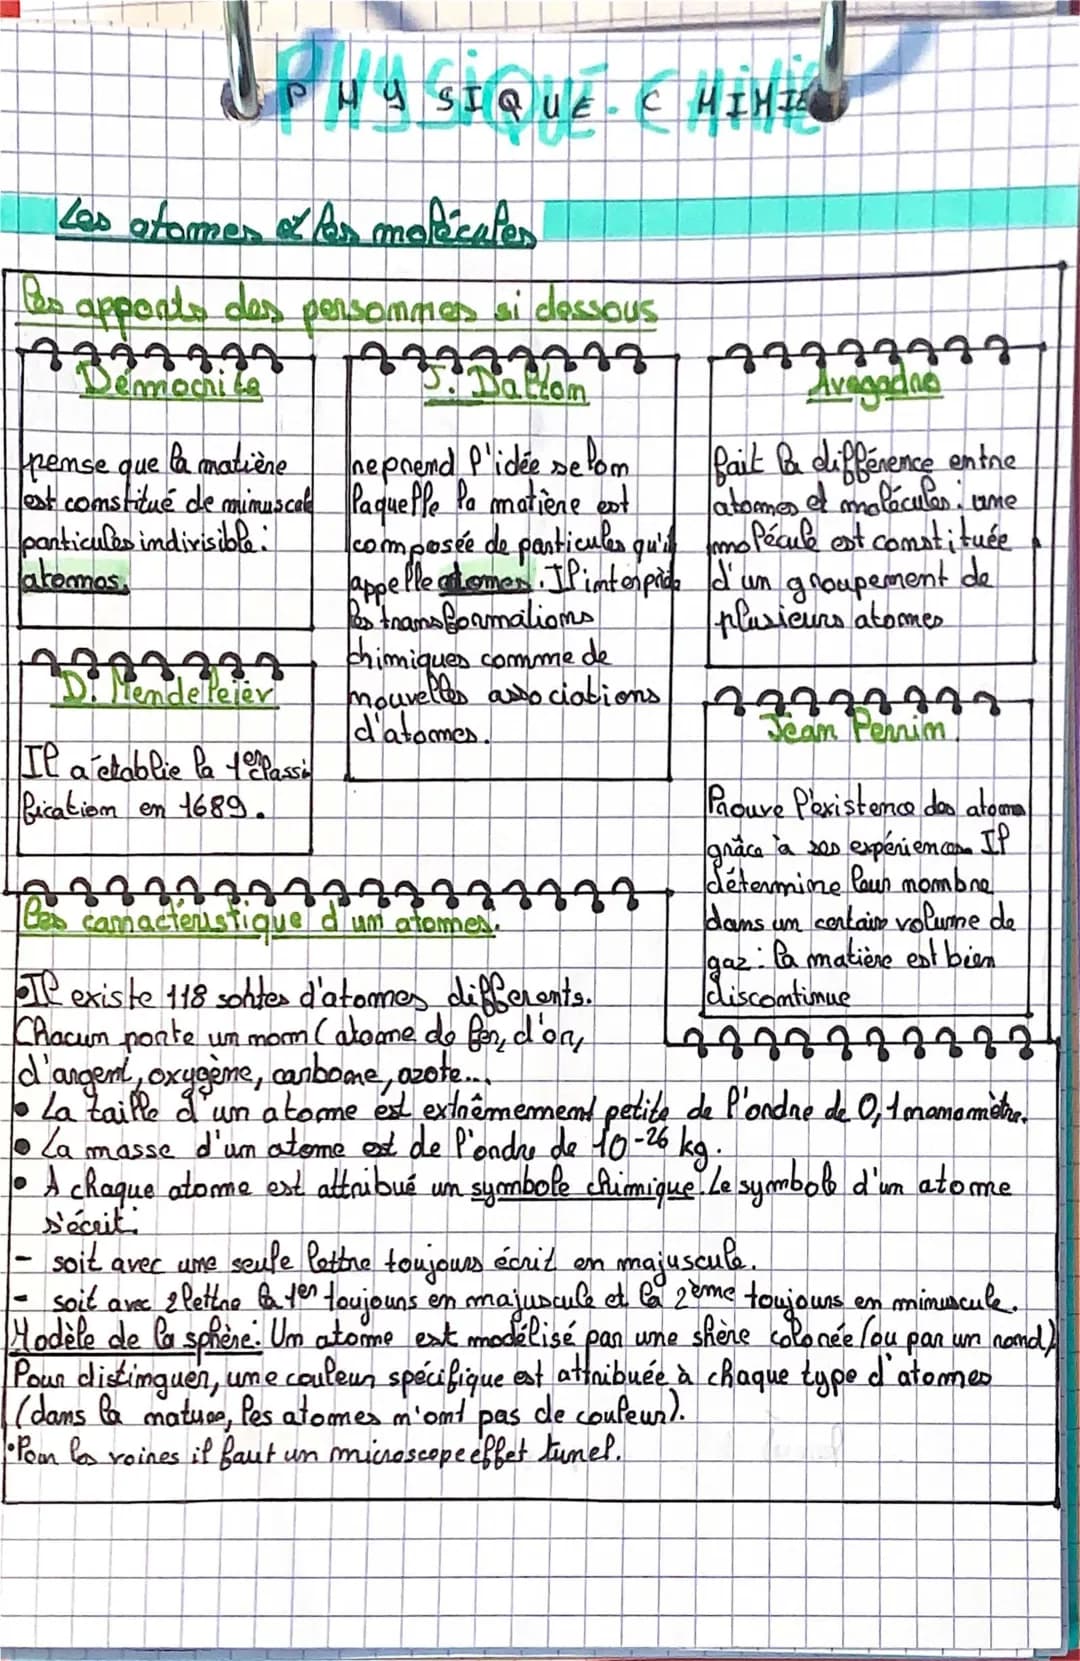 PHYSIQUE-CHIMIE
Les atomes et les molécules
Les apports des personnes si dessous
Démocrite
pense que la matière
est constitué de minuscule
particules indivisible :
atomos.
J. Dalton
reprend l'idée selon
laquelle la matière est
composée de particules qu'il
appelle atomes. Il interprète
les transformations
chimiques comme de
nouvelles associations
d'atomes.
Avogadro
fait la différence entre
atomes et molécules : une
molécule est constituée
d'un groupement de
plusieurs atomes
D. Mendeleïev
Il a établie la 1er classi
fication en 1689.
Jean Perrin
Prouve l'existence des atomes
grâce à ses expériences. Il
détermine leur nombre
dans un certain volume de
gaz : la matière est bien
discontinue
Les caractéristique d'un atomes.
• Il existe 118 sortes d'atomes différents.
Chacun porte un nom (atome de fer, d'or,
d'argent, oxygène, carbone, azote...
• La taille d'un atome est extrêmement petite de l'ordre de 0,1 nanomètre.
• La masse d'un atome est de l'ordre de 10-26 kg.
• A chaque atome est attribué un symbole chimique. Le symbole d'un atome
s'écrit :
- soit avec une seule lettre toujours écrit en majuscule.
- soit avec 2 lettre la 1er toujours en majuscule et la 2ème toujours en minuscule.
Modèle de la sphère : Un atome est modélisé par une shère colorée (ou par un rond)
Pour distinguer, une couleur spécifique est attribuée à chaque type d'atomes
(dans la nature, les atomes n'ont pas de couleur).
• Pour les voires il faut un microscope effet tunel.